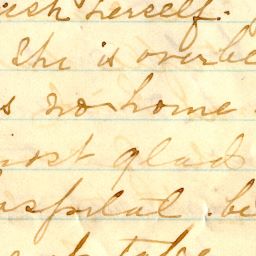 herself.
She is overbe
s no home
ost glad
ospital. bu
take